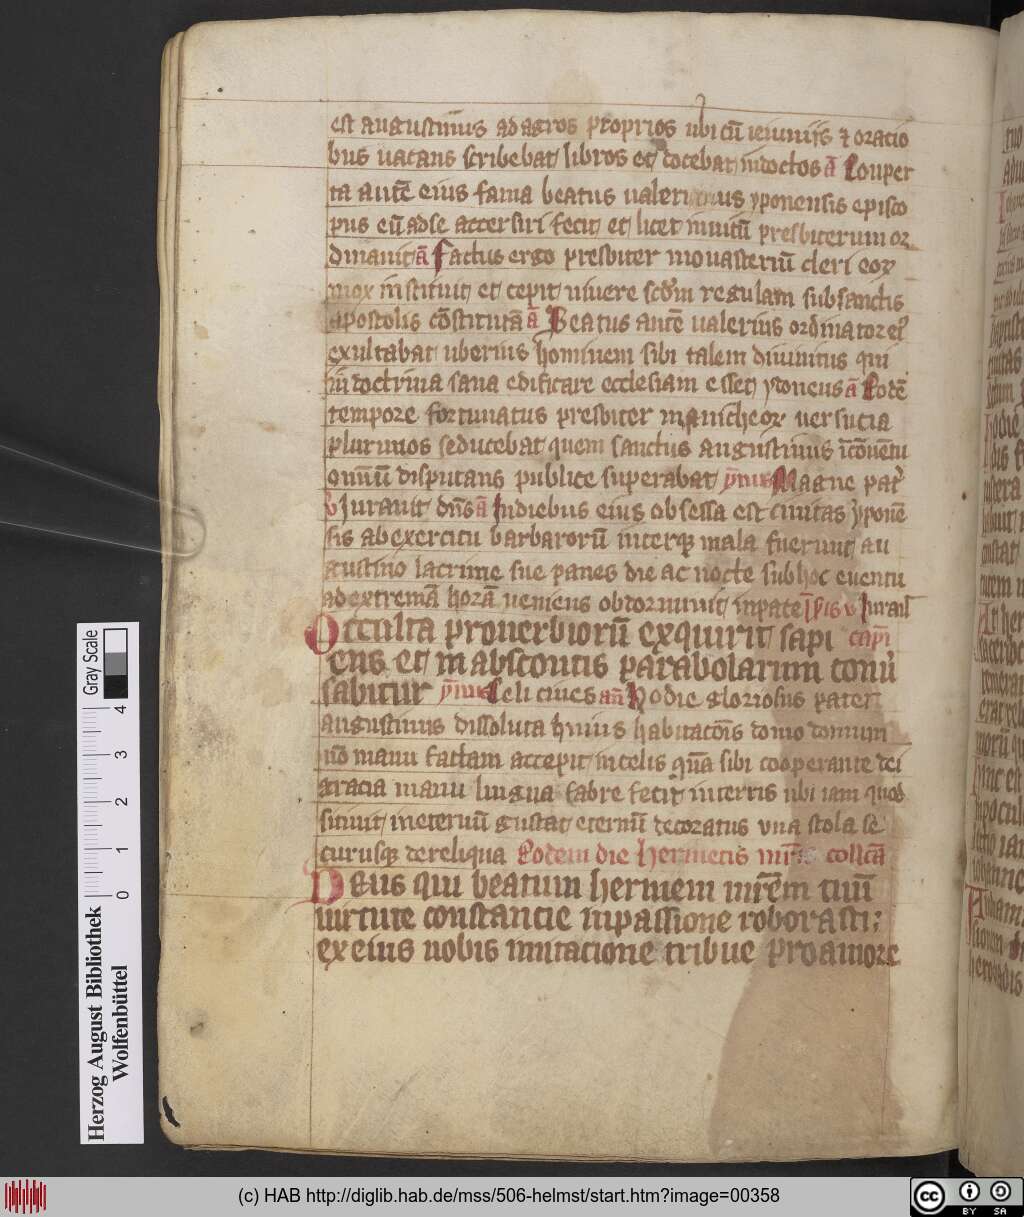 est augustinus ad agros proprios ubi cū ieiuniis ⁊ oracio
bus uatans scribebat libros et docebat indoctos ā Conper
ta autē eius fama beatus ualerianus yponensis episco
pus eū ad se accersiri fecit et licet inuitū presbiterum or
dinauit ā Factus ergo presbiter monasteriū cleri coꝝ
mox instituit et cepit uiuere scd̄m regulam sub sanctis
apostolis cōstitutā ā Beatus autē ualerius ordinator ei᷒
exultabat uberius hominem sibi talem diuinitus qui
in doctrina sana edificare ecclesiam esset ydoneus ā Eodē
tempore fortunatus presbiter manicheoꝝ uersucia
plurimos seducebat quem sanctus augustinus ī cōuentu
omniū disputans publice superabat ym̄us Magne pat᷒
v Iurauit dn̄s ā In diebus eius obsessa est ciuitas yponē
sis ab exercitu barbarorū interqꝫ mala fuerunt au
gustino lacrime sue panes die ac nocte sub hoc euentu
ad extremā horā ueniens obdormiuit in pace ī p̄is v Iurauit
Occulta prouerbiorū exquirit sapi cap̄i
ens et in absconditis parabolarum conu̇
sabitur ym̄us Celi ciues añ Hodie gloriosus pater
augustinus dissoluta huius habitacōis domo domum
nō manu factam accepit in celis qn̄a sibi cooperante dei
gracia manu lingua fabre fecit in terris ubi iam quod
sitiuit in eternū gustat eternū decoratus vna stola se
curusqꝫ de reliqua Eodem die Hermetis mr̄is collc̄ā
Deus qui beatum hermem mr̄em tuū
uirtute constancie in passione roborasti:
ex eius nobis imitacione tribue pro amore
Gray Scale
4
3
2
1
0
Herzog August Bibliothek
Wolfenbüttel
(c) HAB http://diglib.hab.de/mss/506-helmst/start.htm?image=00358
cc BY SA